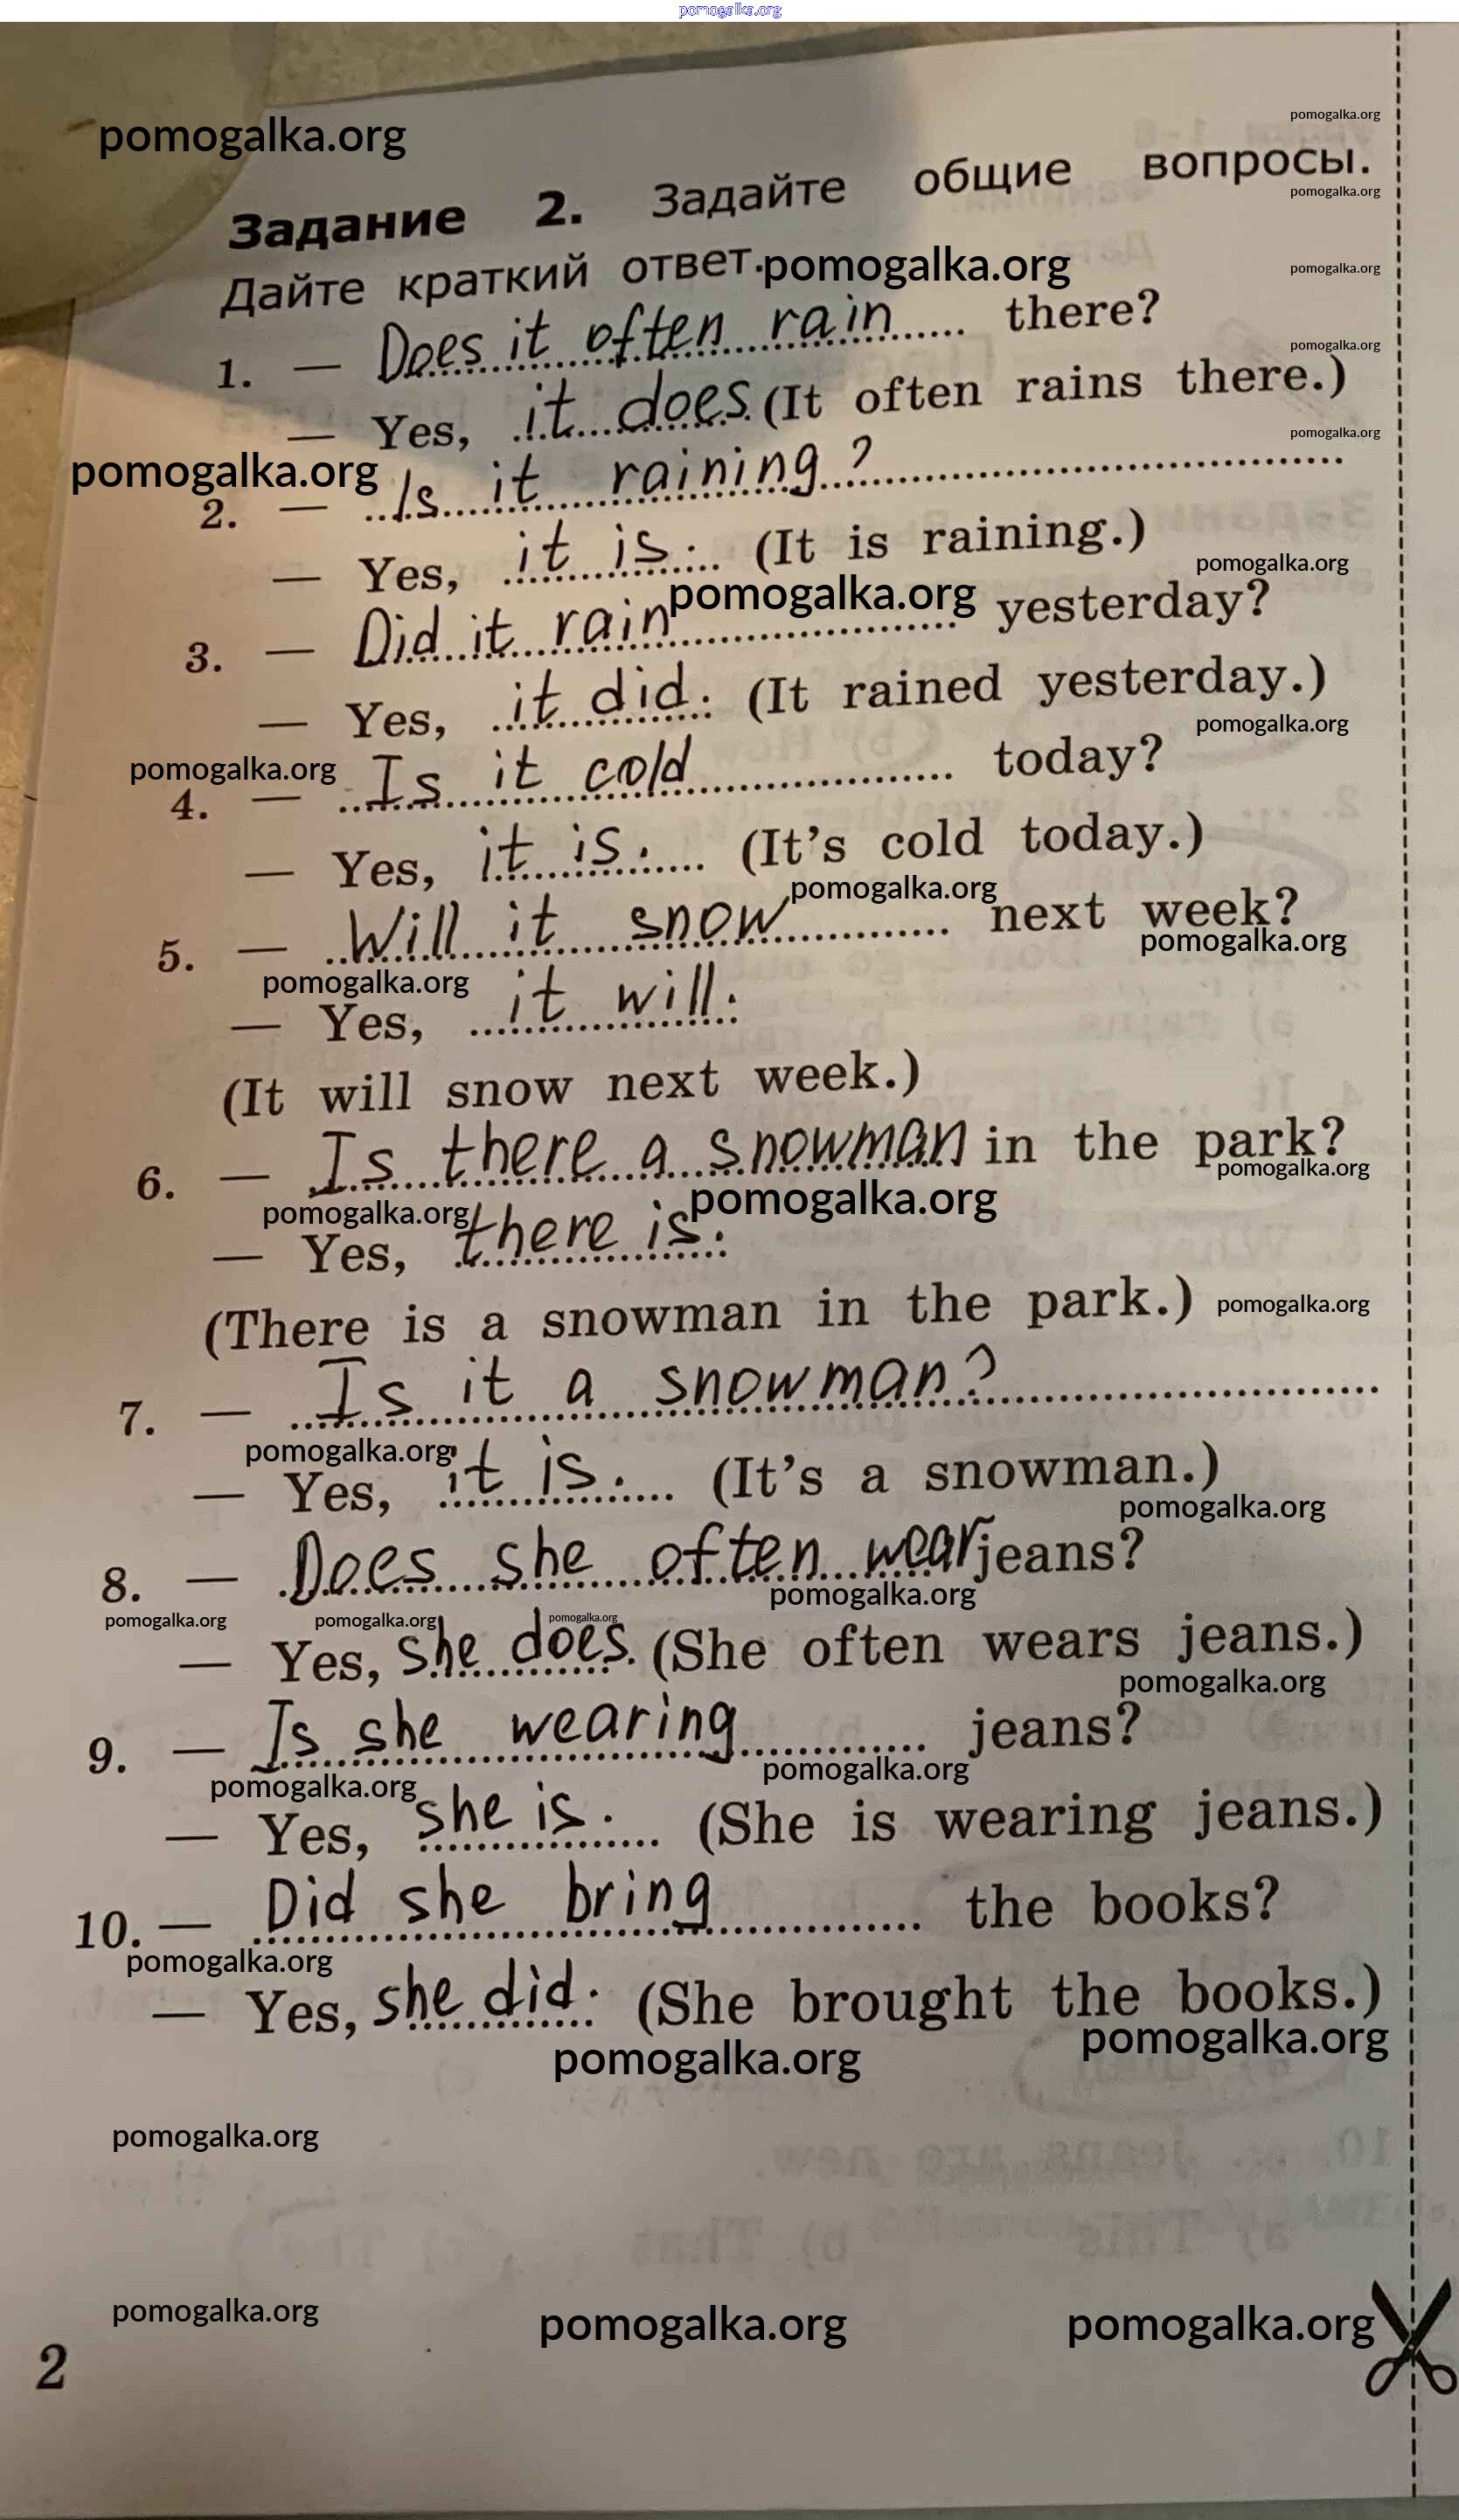 pomogalka.org
pomogalka.org
pomogalka.org
Задание 2. Задайте общие вопросы.
pomogalka.org
Дайте краткий ответ.
pomogalka.org
pomogalka.org
1. — Does it often rain there?
pomogalka.org
— Yes, it does. (It often rains there.)
pomogalka.org
pomogalka.org
2. — Is it raining?
— Yes, it is. (It is raining.)
pomogalka.org
pomogalka.org
3. — Did it rain yesterday?
— Yes, it did. (It rained yesterday.)
pomogalka.org
pomogalka.org
4. — Is it cold today?
— Yes, it is. (It's cold today.)
pomogalka.org
5. — Will it snow next week?
pomogalka.org
pomogalka.org
— Yes, it will.
(It will snow next week.)
6. — Is there a snowman in the park?
pomogalka.org
pomogalka.org
pomogalka.org
— Yes, there is.
(There is a snowman in the park.)
pomogalka.org
7. — Is it a snowman?
pomogalka.org
— Yes, it is. (It's a snowman.)
pomogalka.org
8. — Does she often wear jeans?
pomogalka.org
pomogalka.org
pomogalka.org
pomogalka.org
— Yes, she does. (She often wears jeans.)
pomogalka.org
9. — Is she wearing jeans?
pomogalka.org
pomogalka.org
— Yes, she is. (She is wearing jeans.)
10. — Did she bring the books?
pomogalka.org
— Yes, she did. (She brought the books.)
pomogalka.org
pomogalka.org
pomogalka.org
pomogalka.org
pomogalka.org
pomogalka.org
2